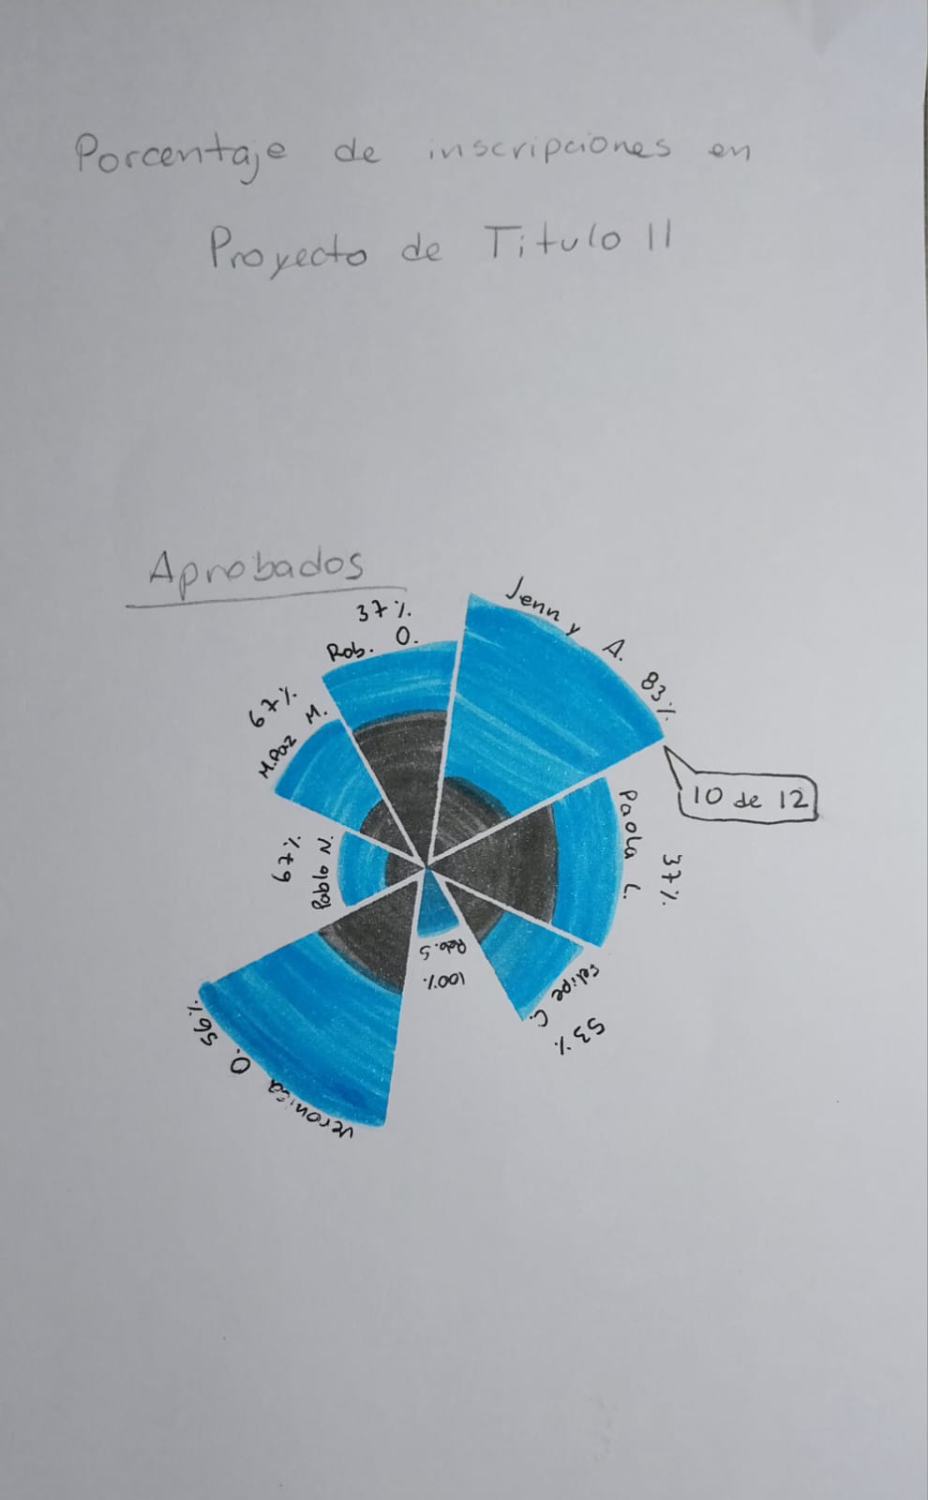 Porcentaje de inscripciones en
Proyecto de Titulo II
Aprobados
Jenny A. 83%
10 de 12
Paola L.
37%
Felipe C.
53%
Rob. S
100%
Veronica O. 56%
Pablo N.
67%
M.Paz M.
67%
Rob. O.
37%